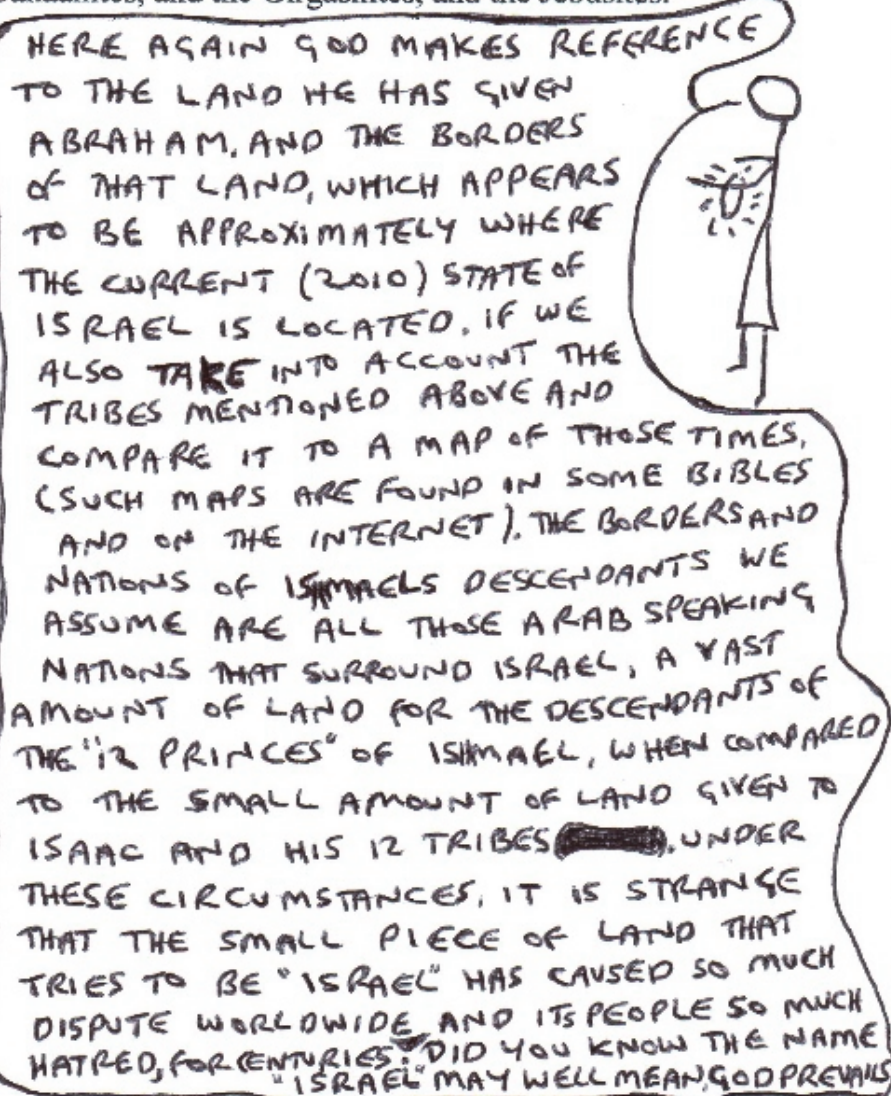 HERE AGAIN GOD MAKES REFERENCE
TO THE LAND HE HAS GIVEN
ABRAHAM. AND THE BORDERS
OF THAT LAND, WHICH APPEARS
TO BE APPROXIMATELY WHERE
THE CURRENT (2010) STATE OF
ISRAEL IS LOCATED. IF WE
ALSO TAKE INTO ACCOUNT THE
TRIBES MENTIONED ABOVE AND
COMPARE IT TO A MAP OF THOSE TIMES.
(SUCH MAPS ARE FOUND IN SOME BIBLES
AND ON THE INTERNET). THE BORDERS AND
NATIONS OF ISHMAELS DESCENDANTS WE
ASSUME ARE ALL THOSE ARAB SPEAKING
NATIONS THAT SURROUND ISRAEL, A VAST
AMOUNT OF LAND FOR THE DESCENDANTS OF
THE "12 PRINCES" OF ISHMAEL, WHEN COMPARED
TO THE SMALL AMOUNT OF LAND GIVEN TO
ISAAC AND HIS 12 TRIBES. UNDER
THESE CIRCUMSTANCES, IT IS STRANGE
THAT THE SMALL PIECE OF LAND THAT
TRIES TO BE "ISRAEL" HAS CAUSED SO MUCH
DISPUTE WORLDWIDE AND ITS PEOPLE SO MUCH
HATRED, FOR CENTURIES. DID YOU KNOW THE NAME
"ISRAEL" MAY WELL MEAN, GOD PREVAILS